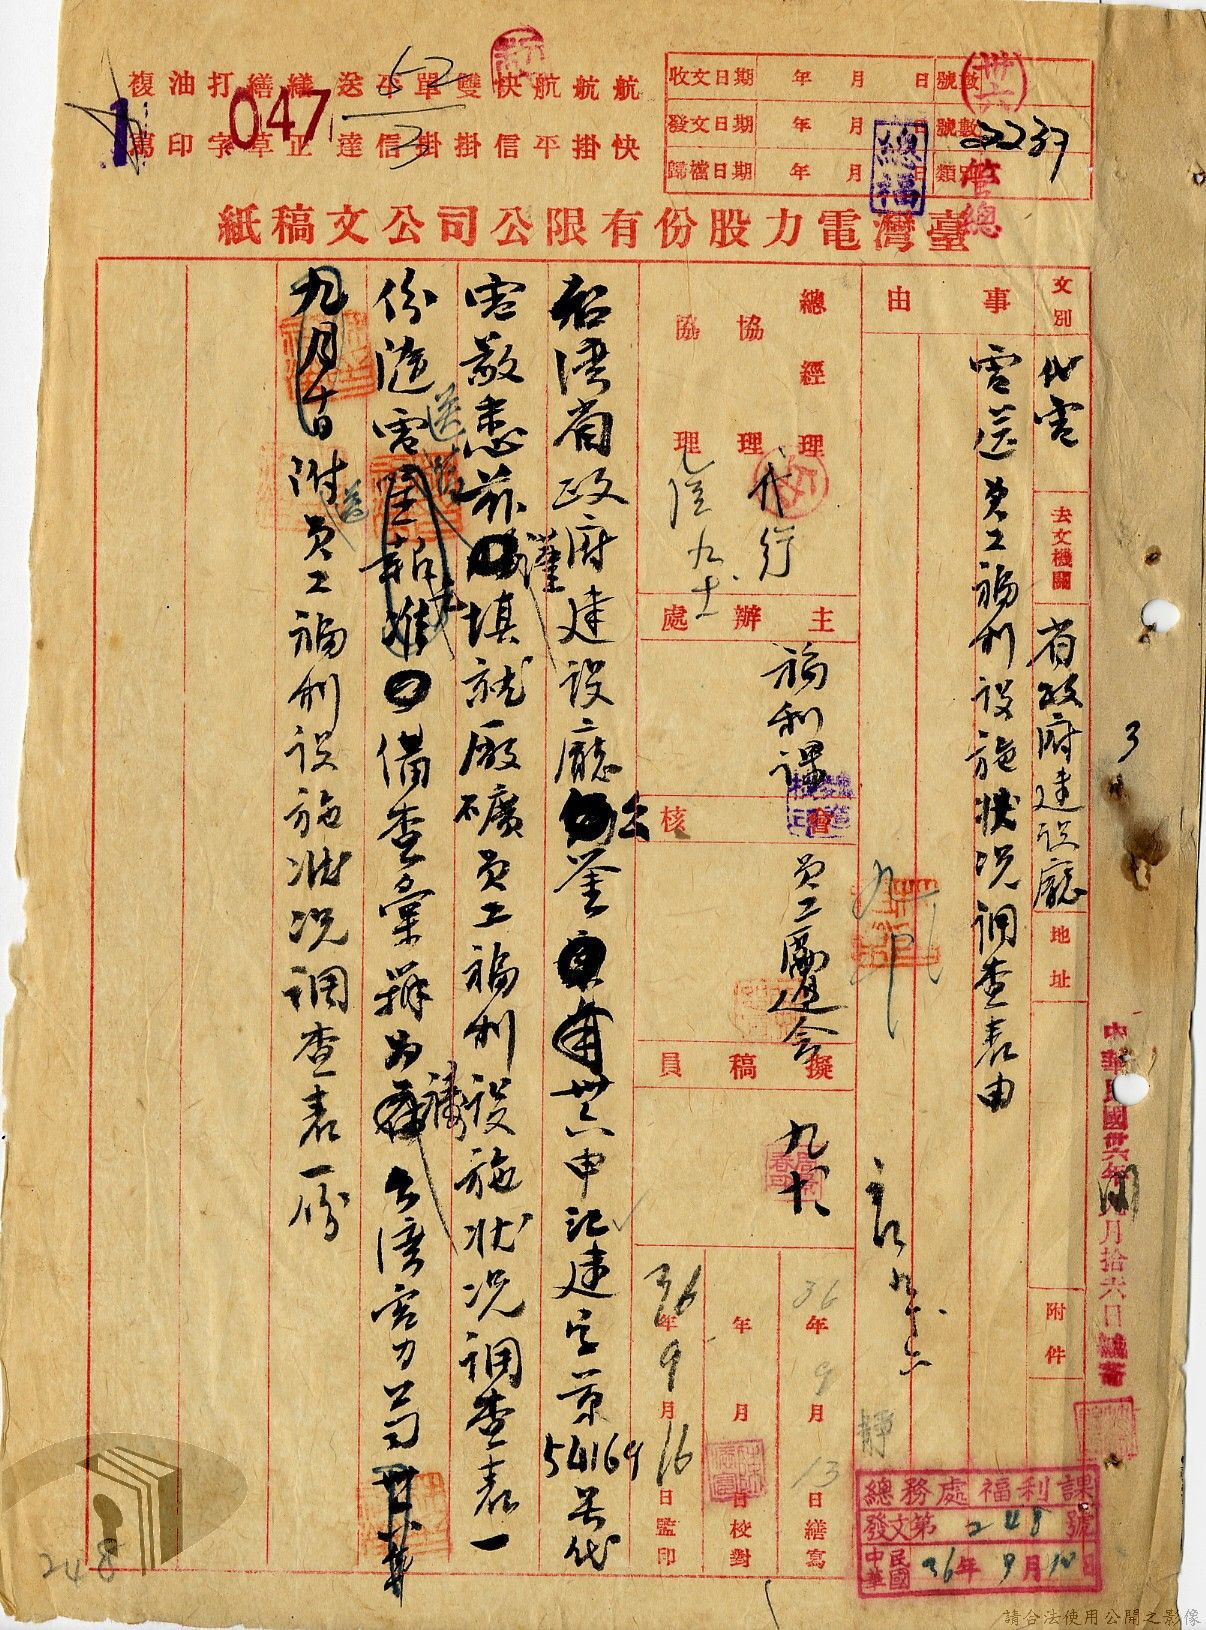 航快
航掛
航平
快信
雙掛
單掛
平信
送達
繕正
繕草
打字
油印
複寫
047
1
62/3
收文日期 年 月 日 號數
發文日期 年 月 日 號數
歸檔日期 年 月 日 類別
卅六
2239
管總
總福
臺灣電力股份有限公司公文稿紙
文別 代電
去文機關 省政府建設廳
地址
附件
事由
電送員工福利設施狀況調查表由
總經理
協理
協理
代行
主辦處 福利課
會核 員工勵進會
擬稿員
36年9月13日繕寫
年 月 日校對
36年9月16日監印
台灣省政府建設廳公鑒卅六申江建字第54169號代
電敬悉茲謹填就廠礦員工福利設施狀況調查表一
份隨電送請備查彙辦為禱台灣電力
附員工福利設施狀況調查表一份
中華民國卅六年九月拾六日
3
總務處福利課
發文第248號
中華民國36年9月10日
248
請合法使用公開之影像